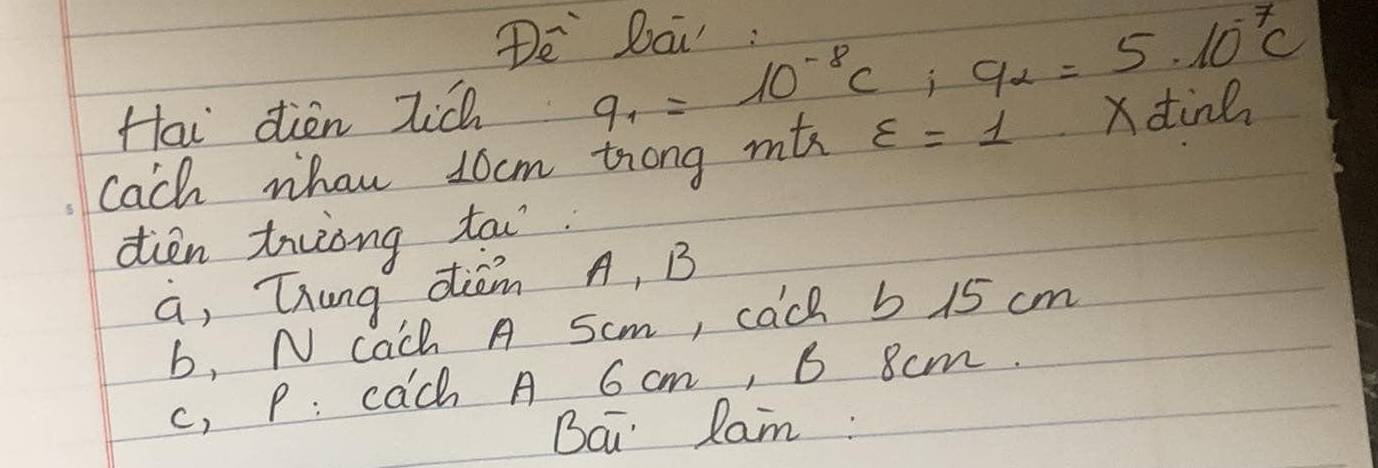 Đề bài :
Hai điện tích q₁ = 10⁻⁸C ; q₂ = 5.10⁻⁷C
cách nhau 10cm trong mtr ε = 1. Xđịnh
điện trường tại :
a, Trung điểm A, B
b, N cách A 5cm, cách b 15 cm
c, P : cách A 6 cm, B 8cm.
Bài làm :